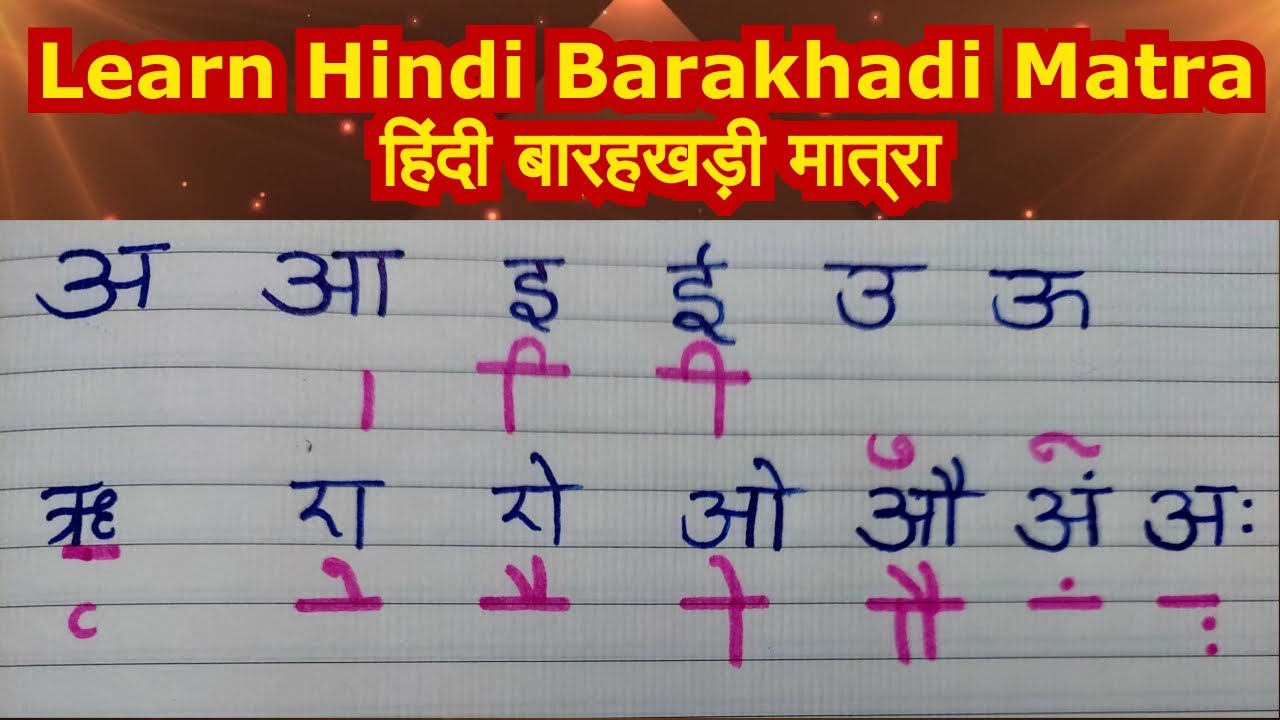 Learn Hindi Barakhadi Matra
हिंदी बारहखड़ी मात्रा
अ आ इ ई उ ऊ
ा ि ी
ु ू
ऋ ए ऐ ओ औ अं अः
ृ े ै ो ौ ं ः